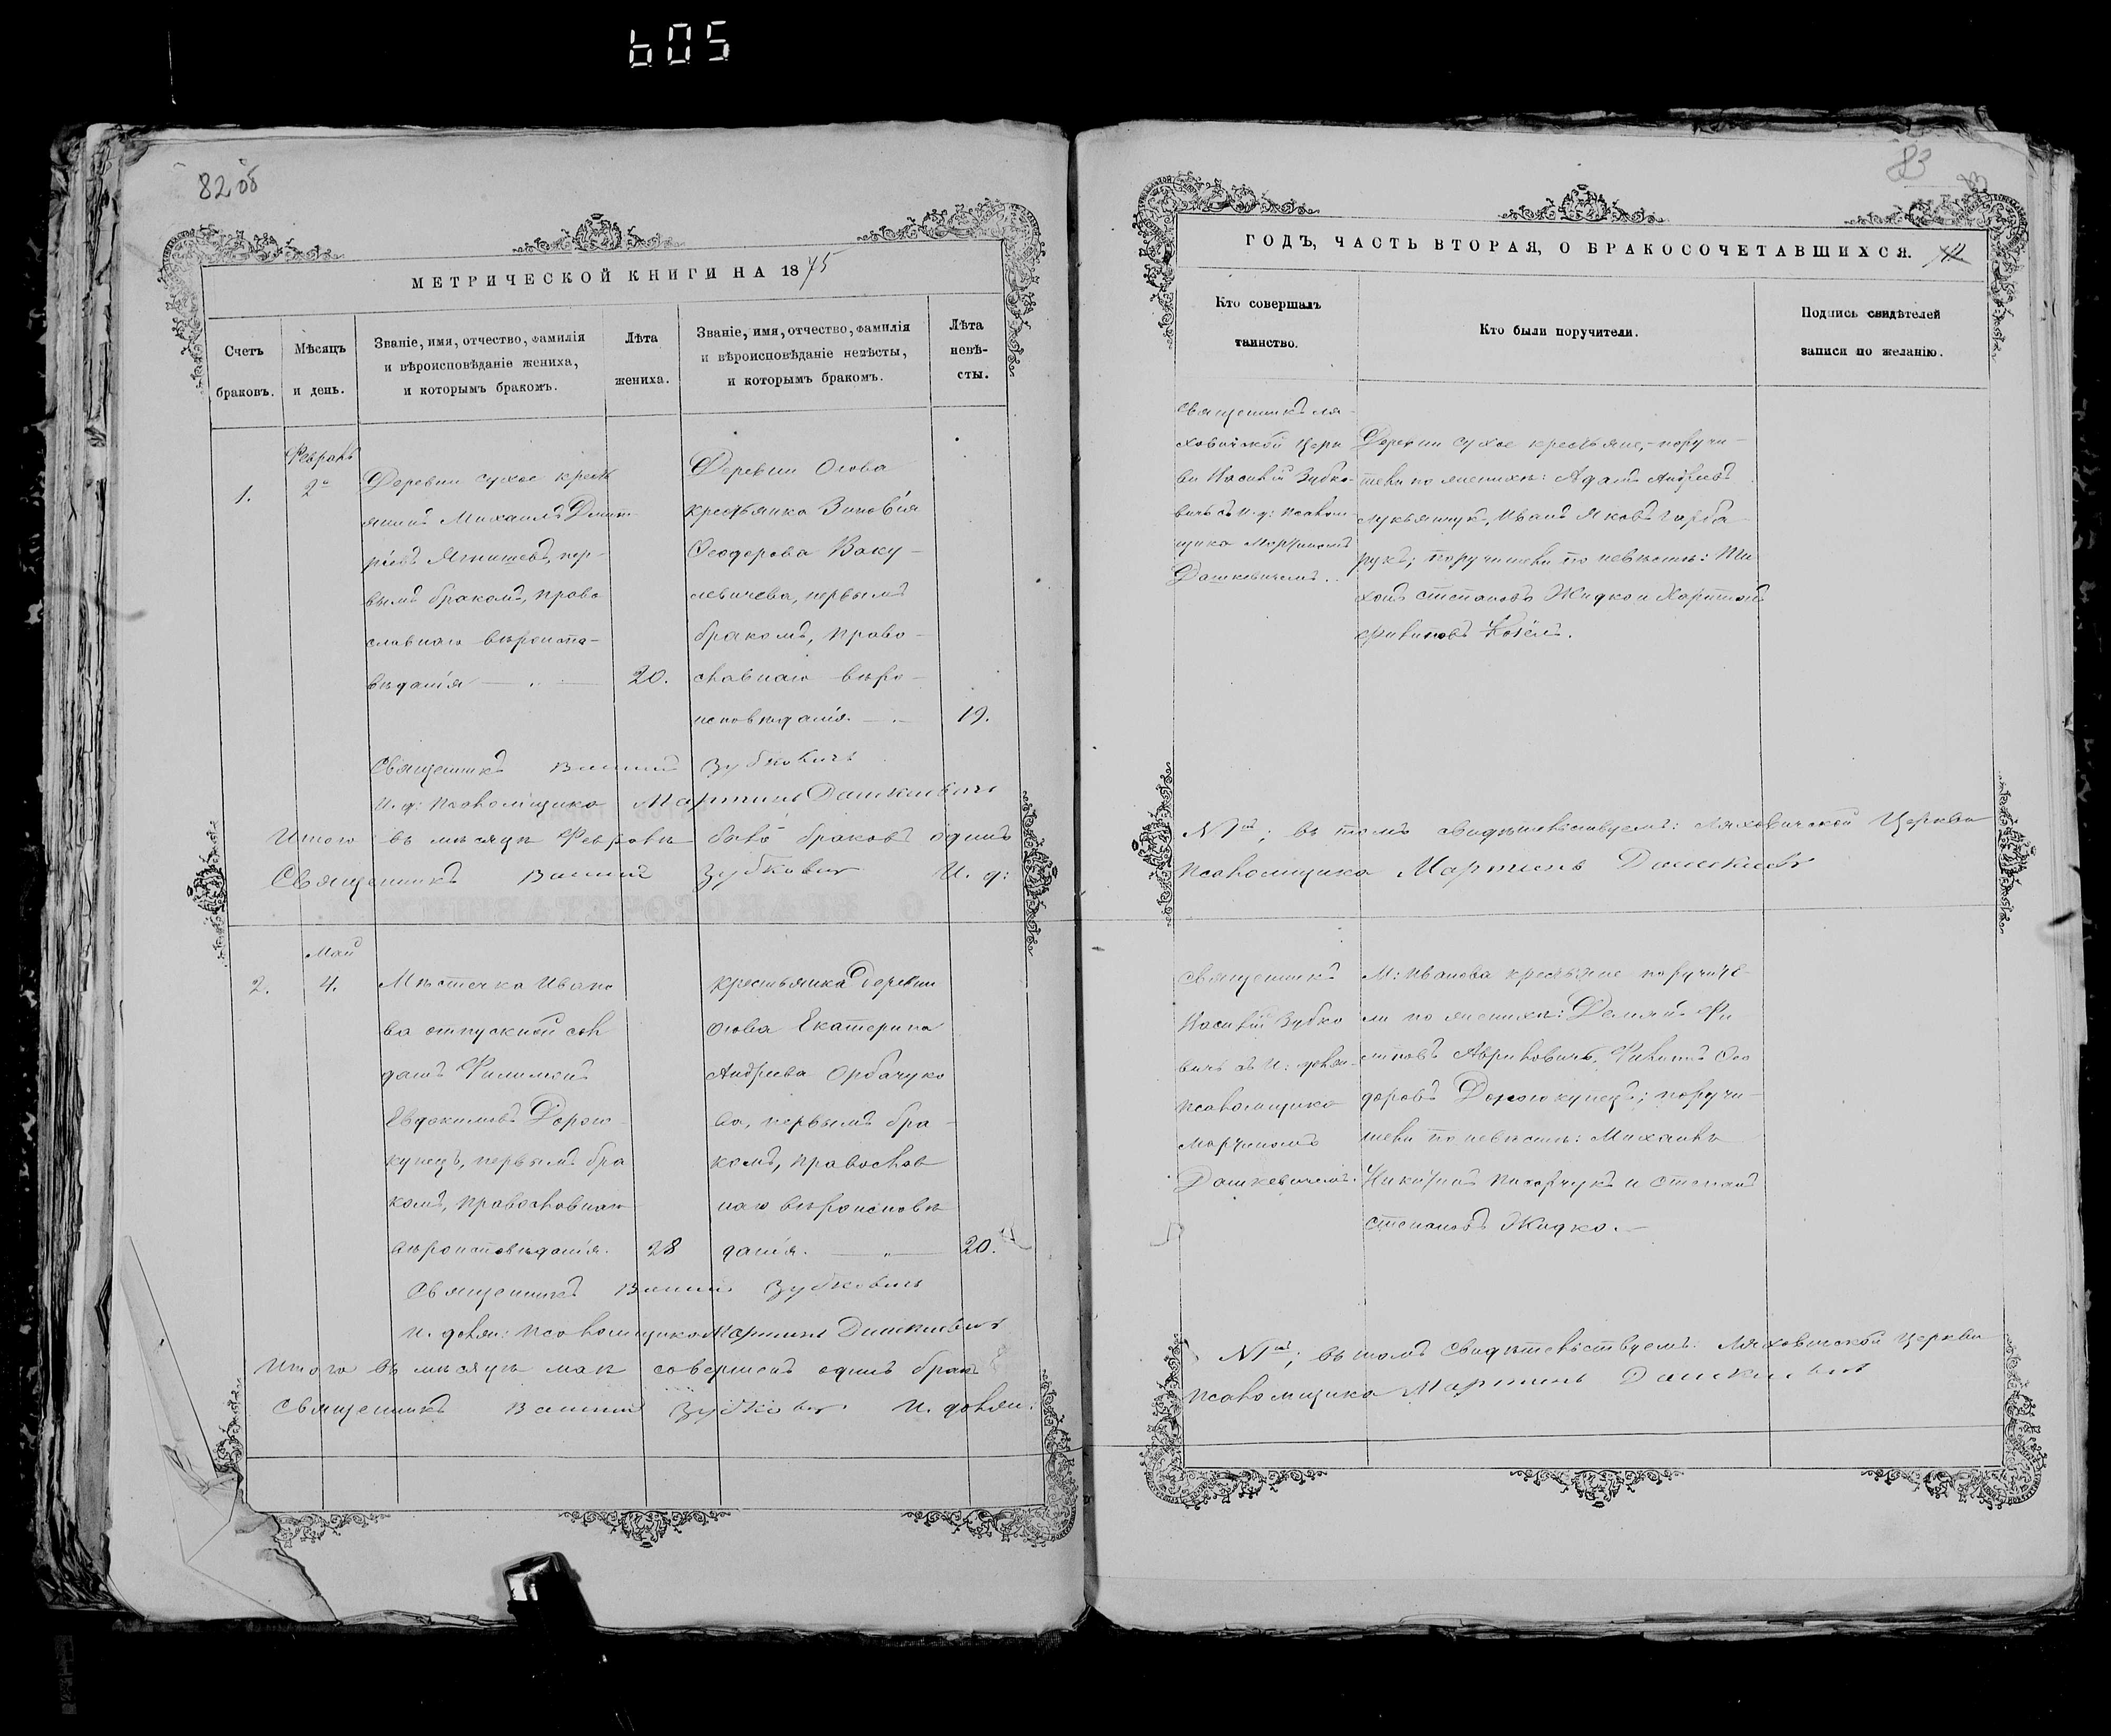 605
82 об
МЕТРИЧЕСКОЙ КНИГИ НА 1875
Счетъ браковъ.
Мѣсяцъ и день.
Званіе, имя, отчество, фамилія
и вѣроисповѣданіе жениха,
и которымъ бракомъ.
Лѣта жениха.
Званіе, имя, отчество, фамилія
и вѣроисповѣданіе невѣсты,
и которымъ бракомъ.
Лѣта невѣ-
сты.
1.
Февраль
2º
Деревни Сухое кресть
янинъ Михаилъ Димит
ріевъ пер-
вымъ бракомъ, право
славнаго вѣроиспо-
вѣданія
20.
Деревни Огова
крестьянка Зиновія
Ѳеодорова Ваку-
левичева, первымъ
бракомъ, право-
славнаго вѣро-
исповѣданія.
19.
Священникъ Василій Зубковичъ
И. д: Псаломщика Мартинъ Дашкевичъ
Итого въ мѣсяцѣ Февралѣ браковъ одинъ
Священникъ Василій Зубкович И. д:
2.
Май
4.
Мѣстечка Ивано
ва отпускной сол
датъ Филимонъ
Евдокимовъ Дорого
купецъ, первымъ бра
комъ, православнаго
вѣроисповѣданія.
28
крестьянка Деревни
Огова Екатерина
Андреева Орбачуко
ва, первымъ бра-
комъ, православ
наго вѣроисповѣ
данія.
20.
Священникъ Василій Зубковичъ
И. должн: псаломщика Мартинъ Дашкевичъ
Итого въ мѣсяцѣ маѣ совершенъ одинъ бракъ
Священникъ Василій Зубкович И. должн:
83
ГОДЪ, ЧАСТЬ ВТОРАЯ, О БРАКОСОЧЕТАВШИХСЯ.
Кто совершалъ
таинство.
Кто были поручители.
Подпись свидѣтелей
записи по желанію.
Священникъ Ля-
ховичской Церк
ви Василій Зубко-
вичъ съ И. д: псалом-
щика Мартиномъ
Дашкевичемъ.
Деревни Сухое крестьяне, поручи-
тели по женихѣ: Адамъ Андреевъ
Лукьянчук, Иванъ Яковъ Гарба
рукъ; поручители по невѣстѣ: Ти
хонъ Степановъ Жидко и Харитонъ
Филиповъ Козелъ.
№ 1й; въ томъ свидѣтельствуемъ: Ляховичской Церкви
псаломщика Мартинъ Дашкевич
Священникъ
Василій Зубко
вичъ съ И: должн-
псаломщика
Мартиномъ
Дашкевичемъ.
М: Иванова крестьяне поручите-
ли по женихѣ: Демьян Фи
липовъ Филипъ Ѳео
доровъ Дорогокупецъ; поручи-
тели по невѣстѣ: Михаилъ
Никитинъ Писарчукъ и Степанъ
Степановъ Жидко.
№ 1й; въ томъ свидѣтельствуемъ: Ляховичской Церкви
псаломщика Мартинъ Дашкевичъ